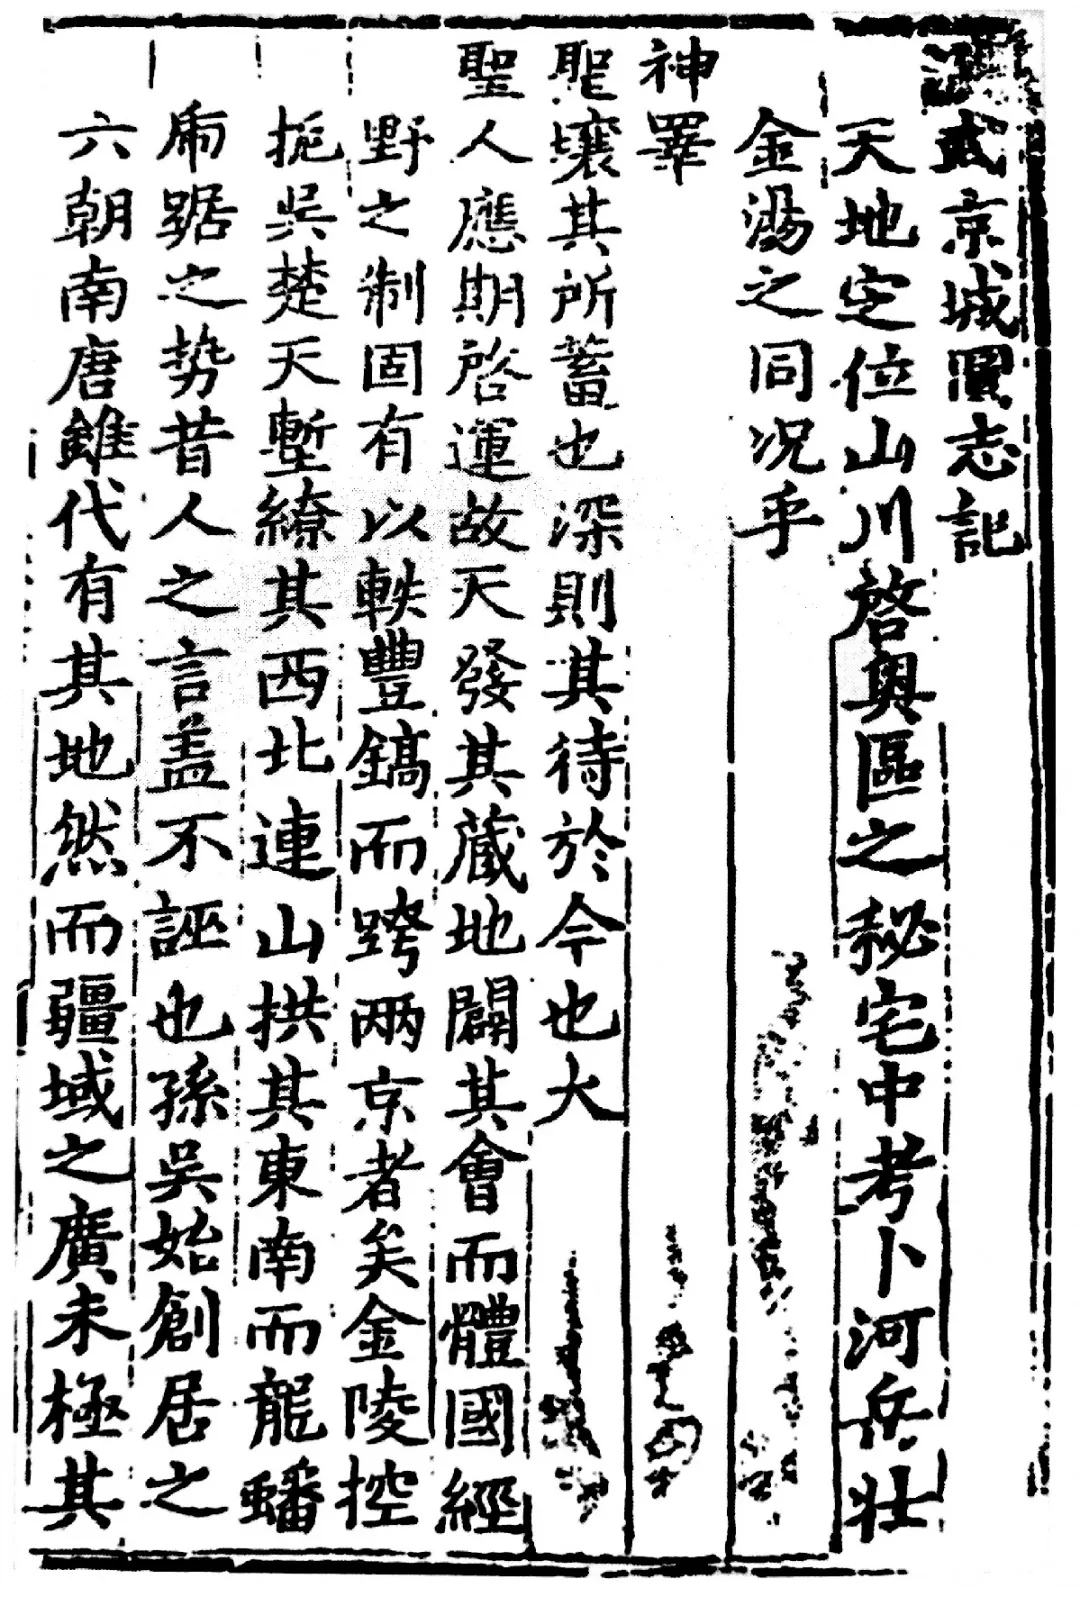 京城圖志記
天地定位山川啓奧區之秘宅中考卜河岳壯
金湯之同况乎
神睪
聖壤其所蓄也深則其待於今也大
聖人應期啓運故天發其藏地闢其會而體國經
野之制固有以軼豐鎬而跨兩京者矣金陵控
扼吳楚天塹繚其西北連山拱其東南而龍蟠
乕踞之势昔人之言盖不誣也孫吳始創居之
六朝南唐雖代有其地然而疆域之廣未極其